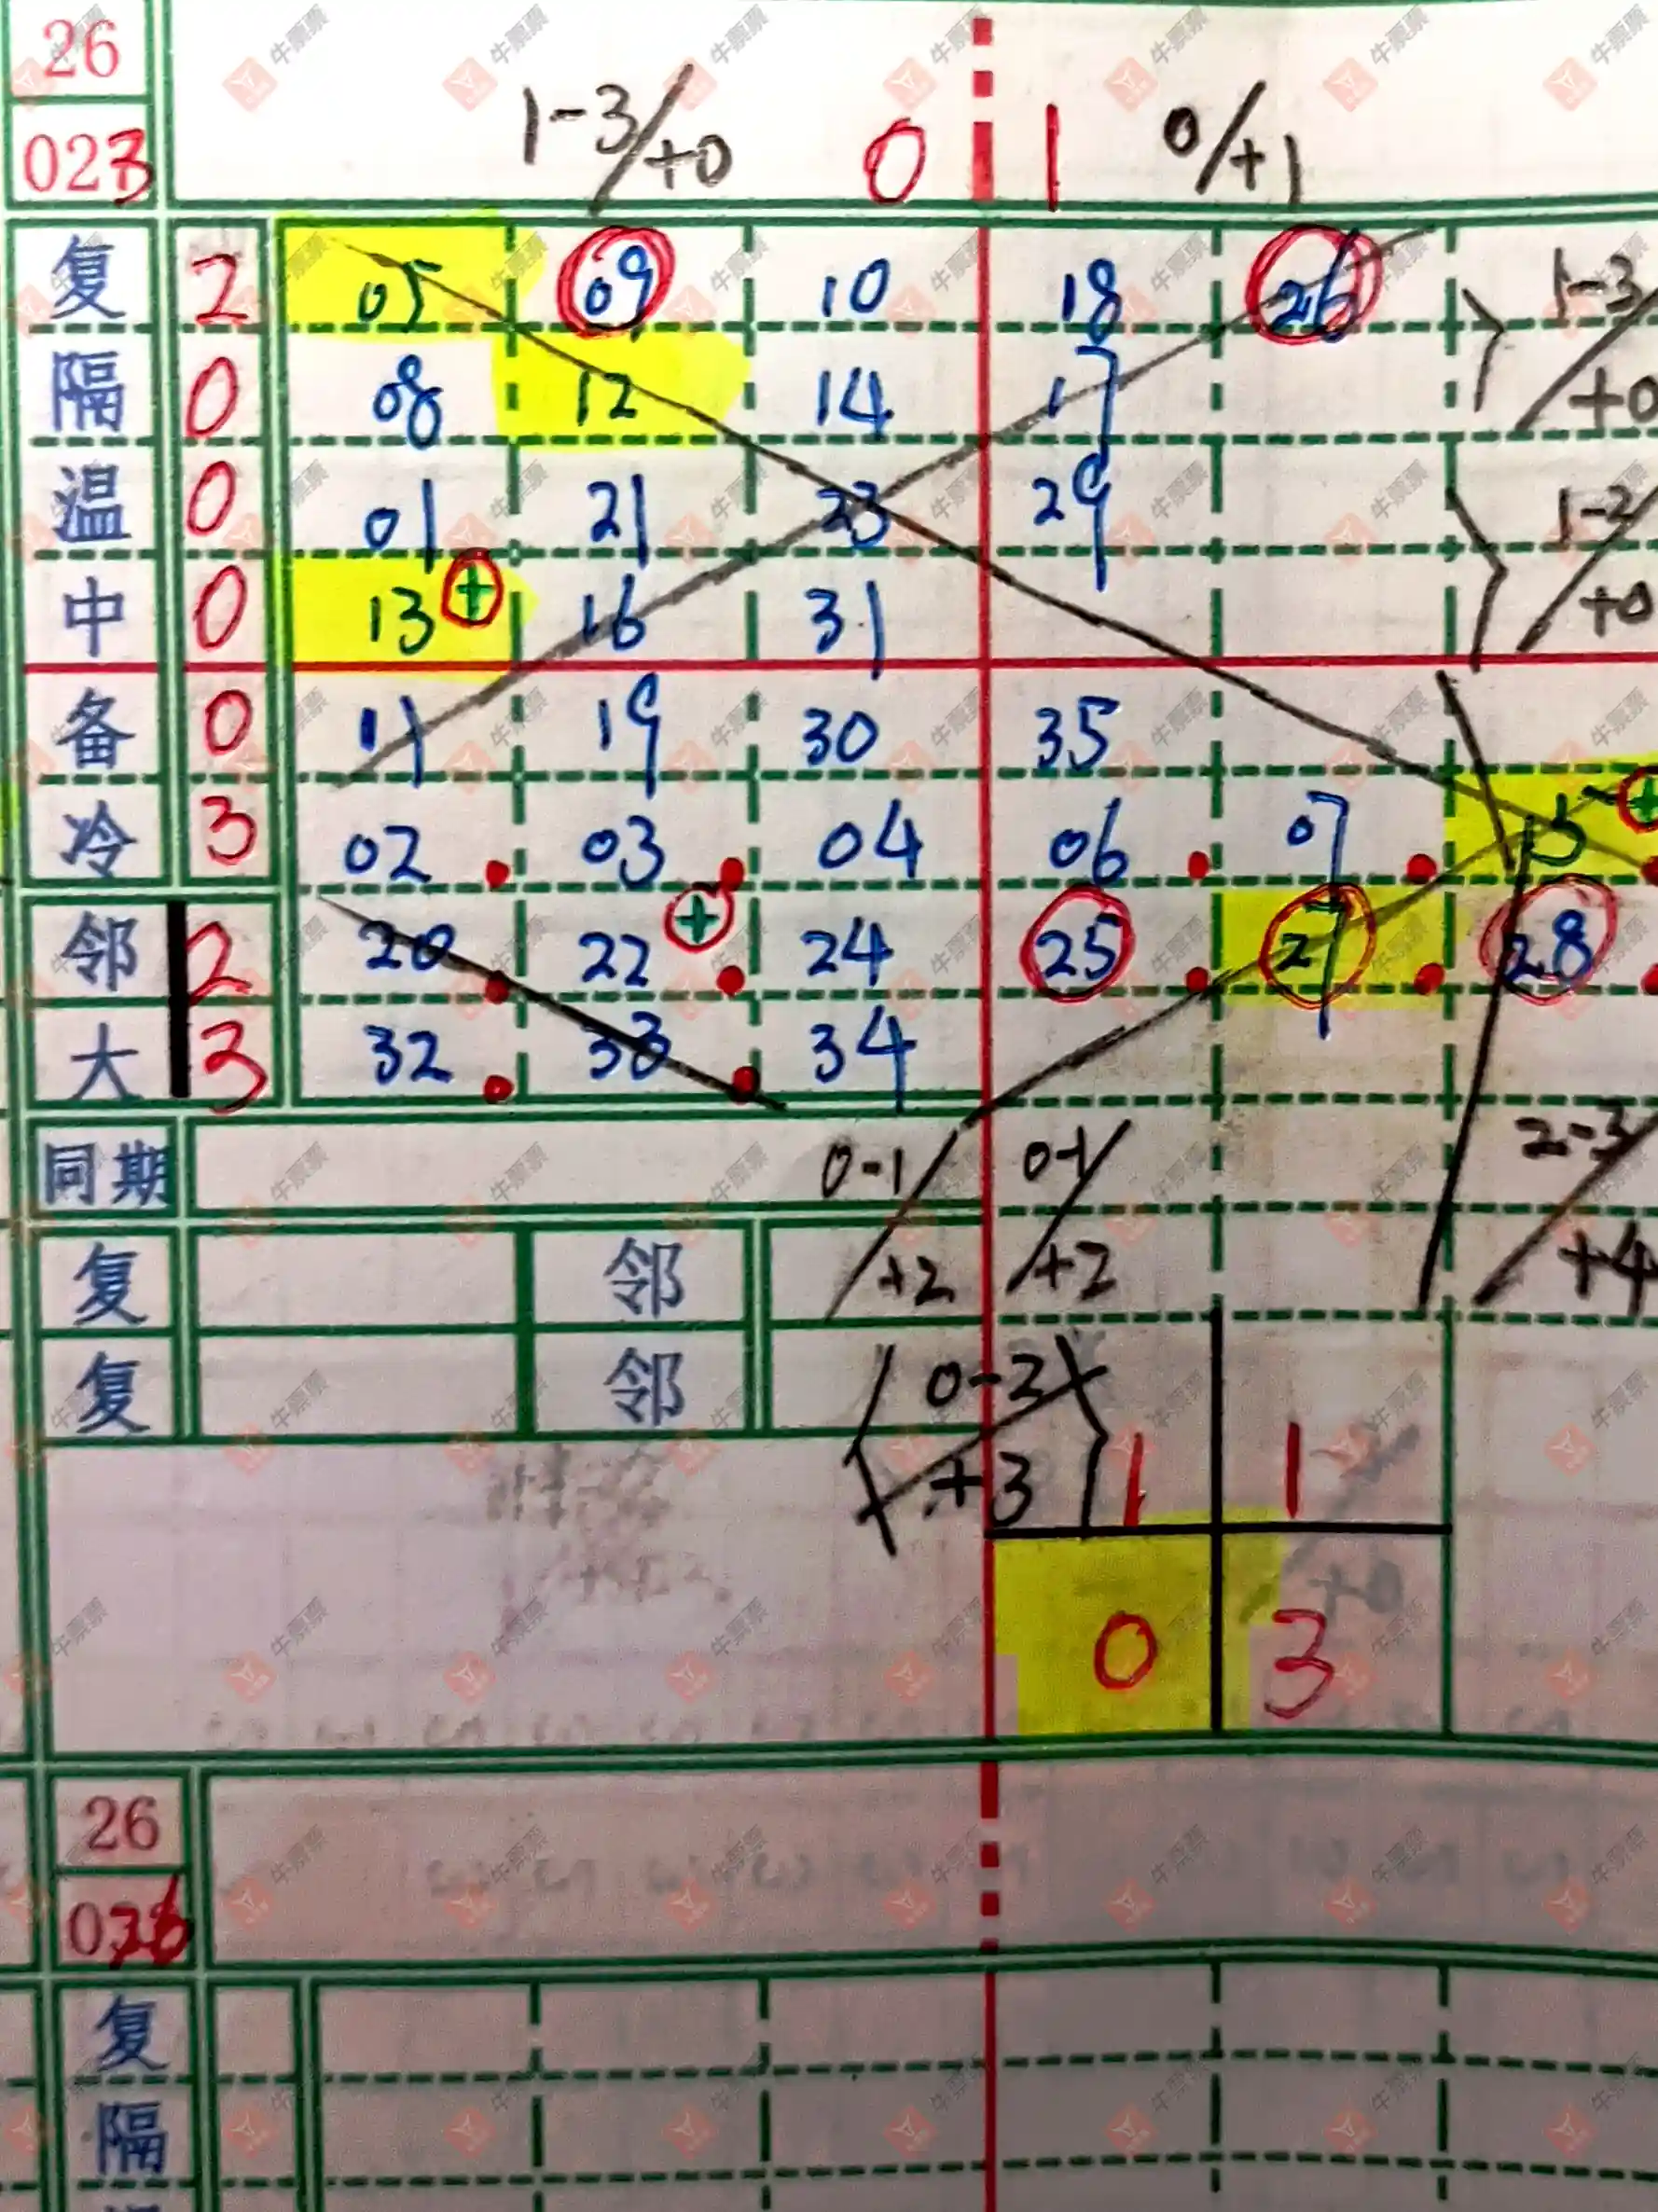 26
023 1-3/+0 0 1 0/+1
复 2 05 09 10 18 26 1-3/+0
隔 0 08 12 14 17
温 0 01 21 23 29 1-2/+0
中 0 13 + 16 31
备 0 11 19 30 35
冷 3 02 03 04 06 07 15 +
邻 2 20 22 + 24 25 27 28
大 3 32 33 34
同期 0-1/+2 0-1/+2 2-3/+4
复 邻
复 邻 0-2/+3 1 1
0 3
26
复
隔
牛票票